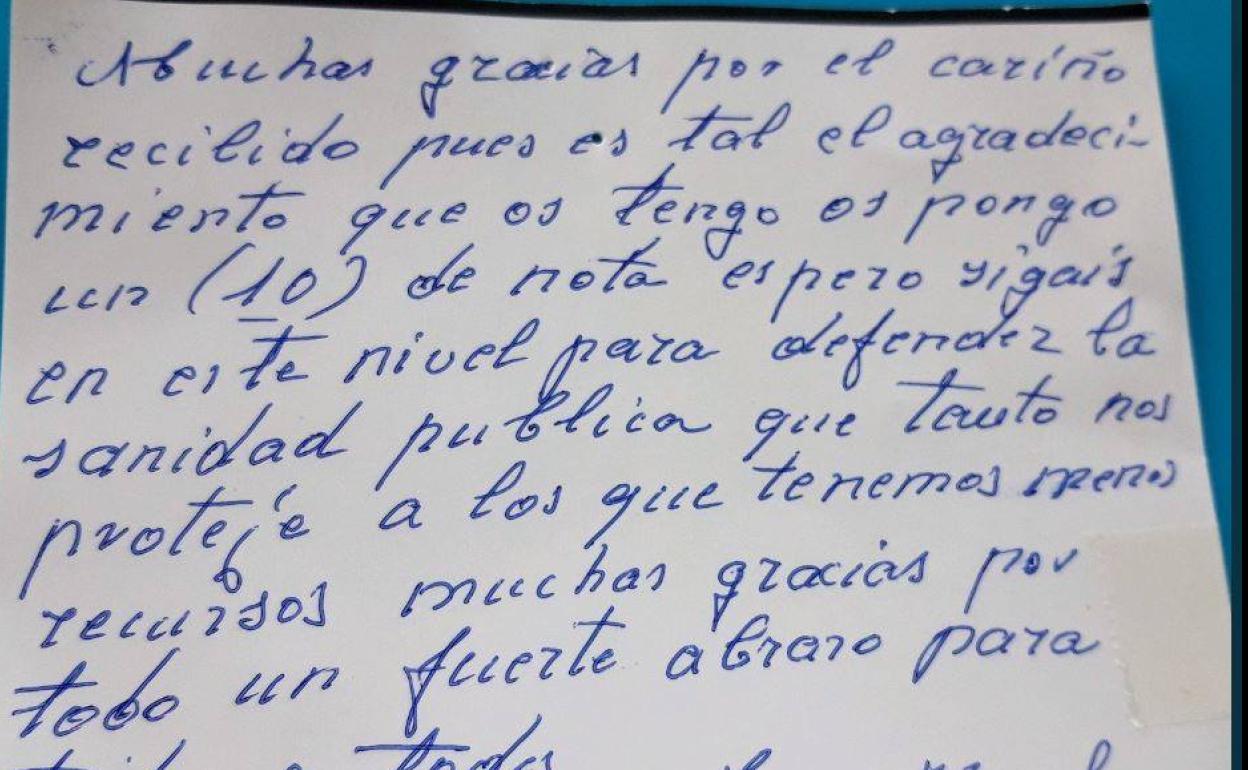 Muchas gracias por el cariño
recibido pues es tal el agradeci-
miento que os tengo os pongo
un (10) de nota espero sigais
en este nivel para defender la
sanidad publica que tanto nos
proteje a los que tenemos menos
recursos muchas gracias por
todo un fuerte abrazo para